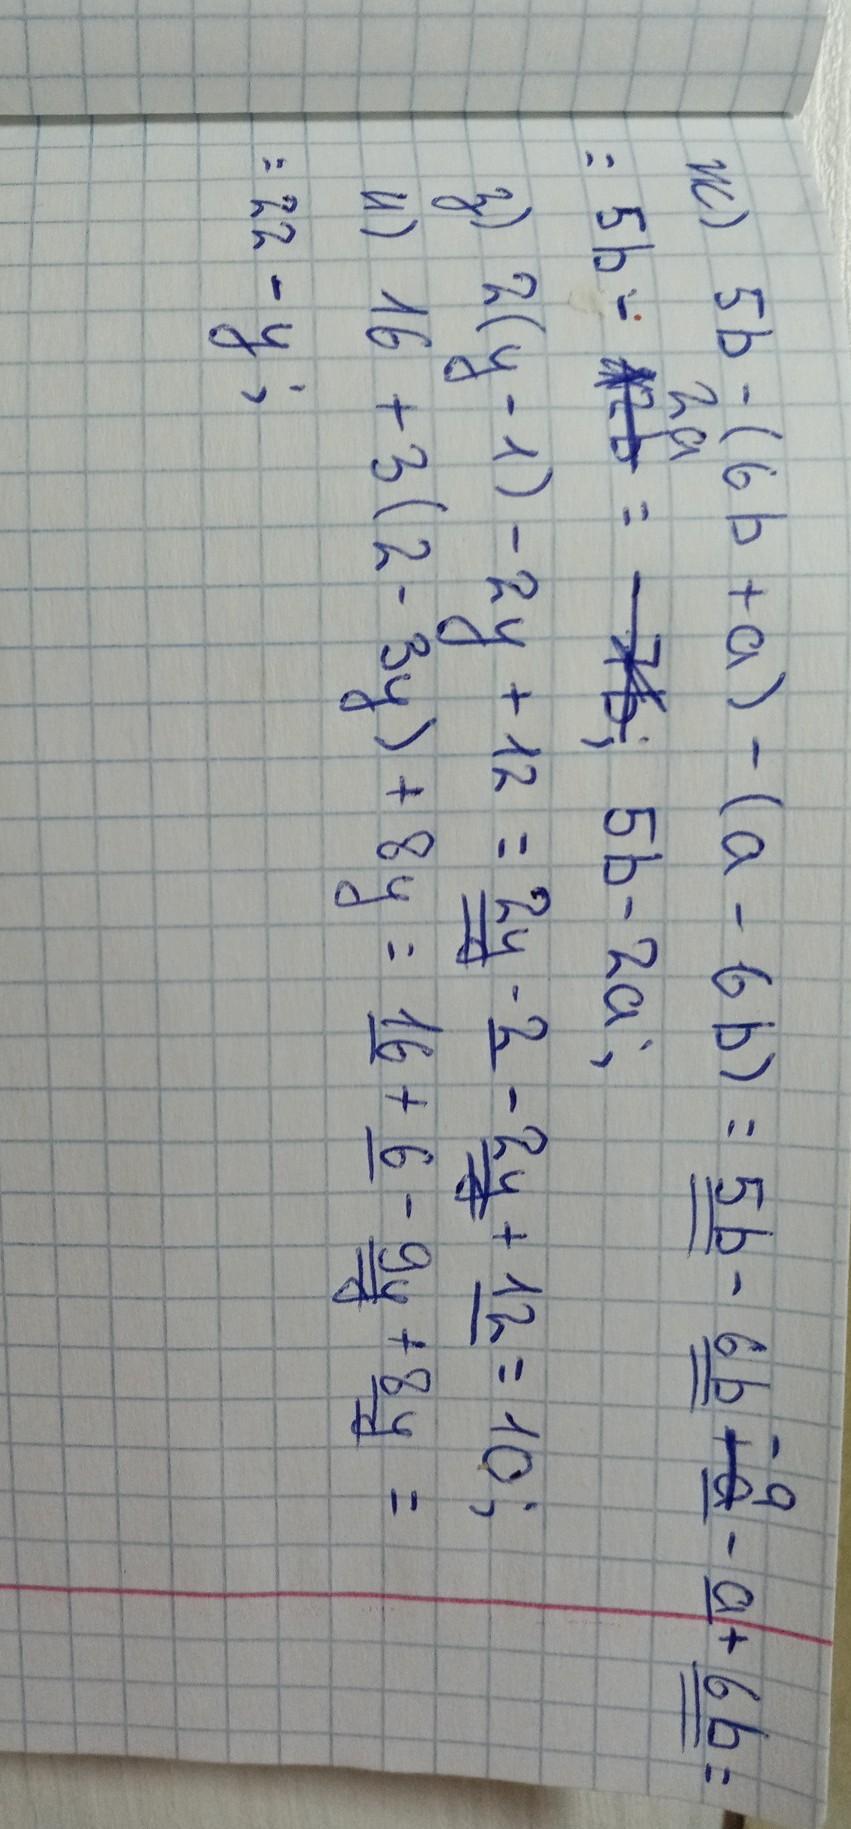 ж) 5b - (6b + a) - (a - 6b) = 5b - 6b - a - a + 6b =
= 5b - 2a = 5b - 2a;
з) 2(y - 1) - 2y + 12 = 2y - 2 - 2y + 12 = 10;
и) 16 + 3(2 - 3y) + 8y = 16 + 6 - 9y + 8y =
= 22 - y;